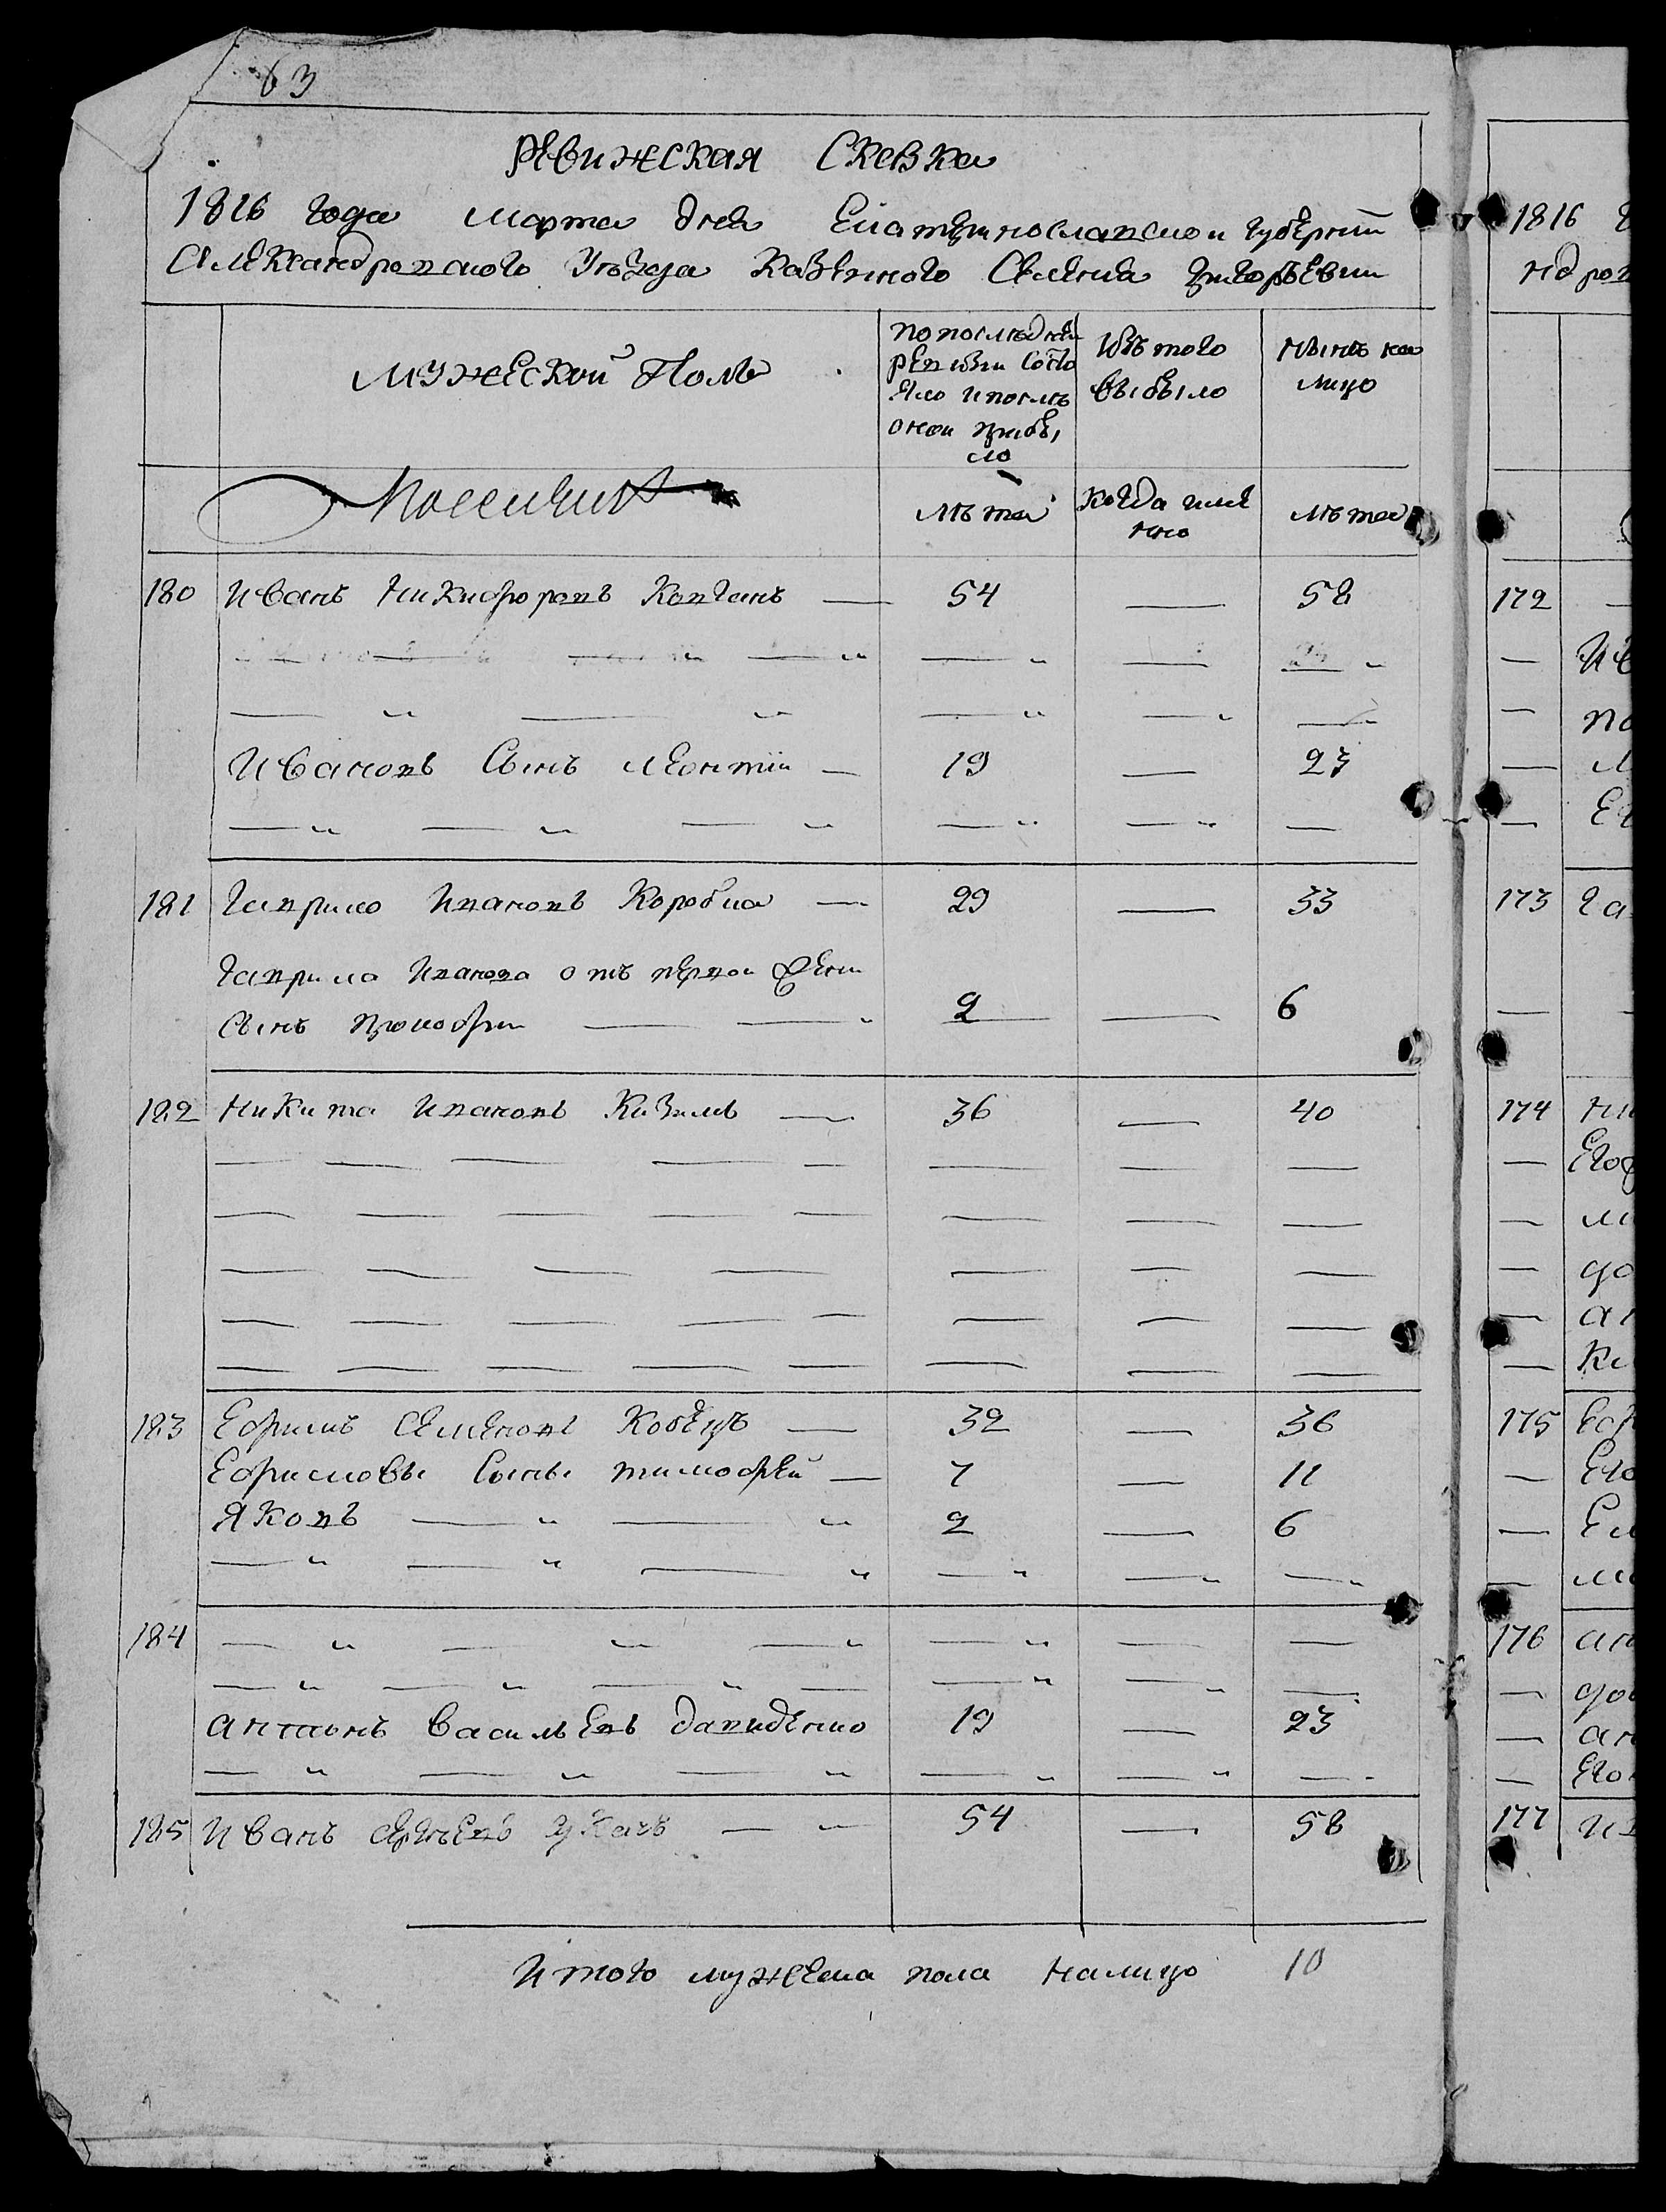 63
РЕвижСКАЯ СКАЗКа
1816 года марта дня Екатеринославской губернiи
Александровского Уѣзда Казенного Селения Григорьевки
Мужеской Полъ
по последней
ревизiи состо
яло и послѣ
оной прибы
ло
Изъ того
выбыло
Нынѣ на
лицо
лѣта
Когда имен
но
лѣта
180 Иванъ Никифоровъ Ковганъ — 54 — 58
Ивановъ Сынъ Леонтiи — 19 — 23
181 Гаврило Ивановъ Коробка — 29 — 33
Гаврила Иванова отъ первой жены
Сынъ Прокофiи — 2 — 6
182 Никита Ивановъ Кизимъ — 36 — 40
183 Ефримъ Семеновъ Кобецъ — 32 — 36
Ефримовы Сыны тимофѣй — 7 — 11
Яковъ — 2 — 6
184
Антонъ Васильевъ давиденко 19 — 23
185 Иванъ Сергѣевъ Укачъ — 54 — 58
Итого мужеска пола налицо 10
1816
ндров
172
173 Га
174 Ни
175
176
177